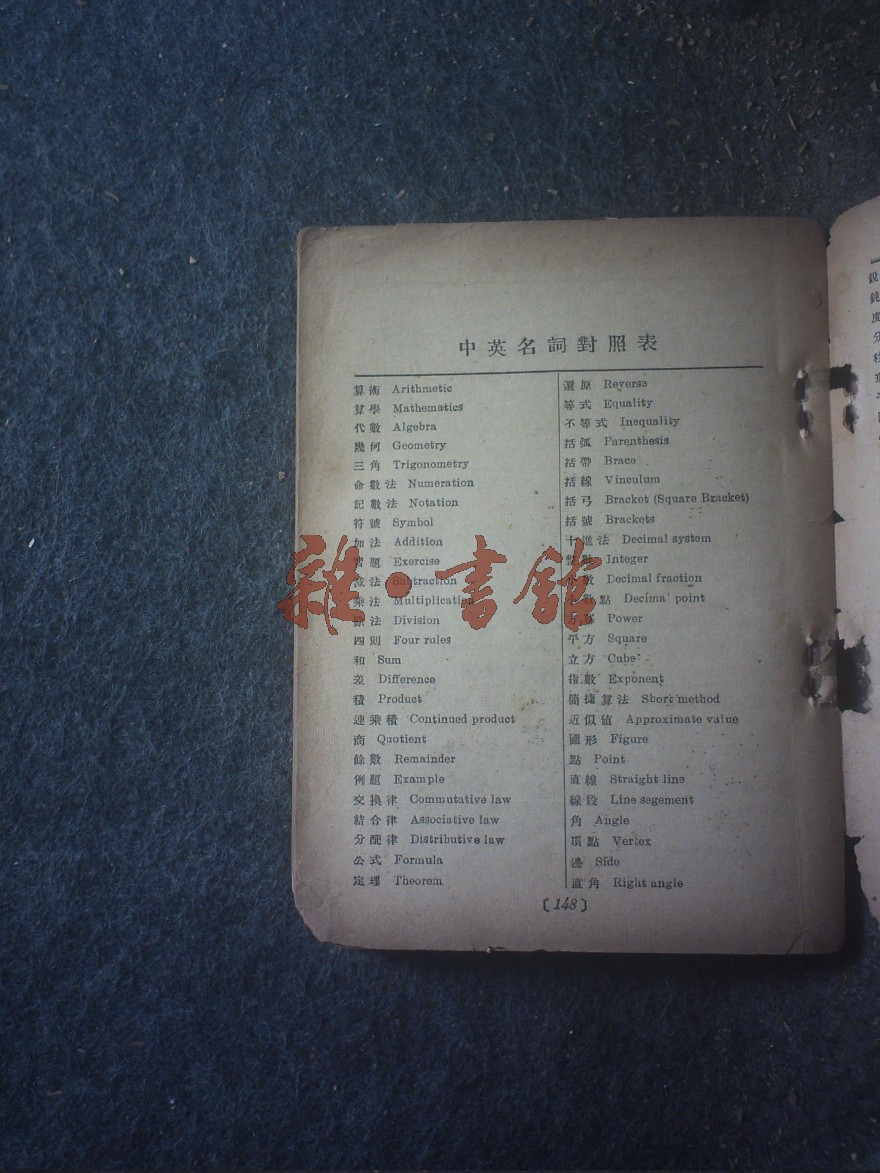 中英名詞對照表
算術 Arithmetic
算學 Mathematics
代數 Algebra
幾何 Geometry
三角 Trigonometry
命數法 Numeration
記數法 Notation
符號 Symbol
加法 Addition
習題 Exercise
減法 Subtraction
乘法 Multiplication
除法 Division
四則 Four rules
和 Sum
差 Difference
積 Product
連乘積 Continued product
商 Quotient
餘數 Remainder
例題 Example
交換律 Commutative law
結合律 Associative law
分配律 Distributive law
公式 Formula
定理 Theorem
還原 Reverse
等式 Equality
不等式 Inequality
括弧 Parenthesis
括帶 Brace
括線 Vinculum
括弓 Bracket (Square Bracket)
括號 Brackets
十進法 Decimal system
整數 Integer
小數 Decimal fraction
小數點 Decimal point
Power
平方 Square
立方 Cube
指數 Exponent
簡捷算法 Short method
近似値 Approximate value
圖形 Figure
點 Point
直線 Straight line
線段 Line segement
角 Angle
頂點 Vertex
邊 Side
直角 Right angle
〔148〕
雜·書館